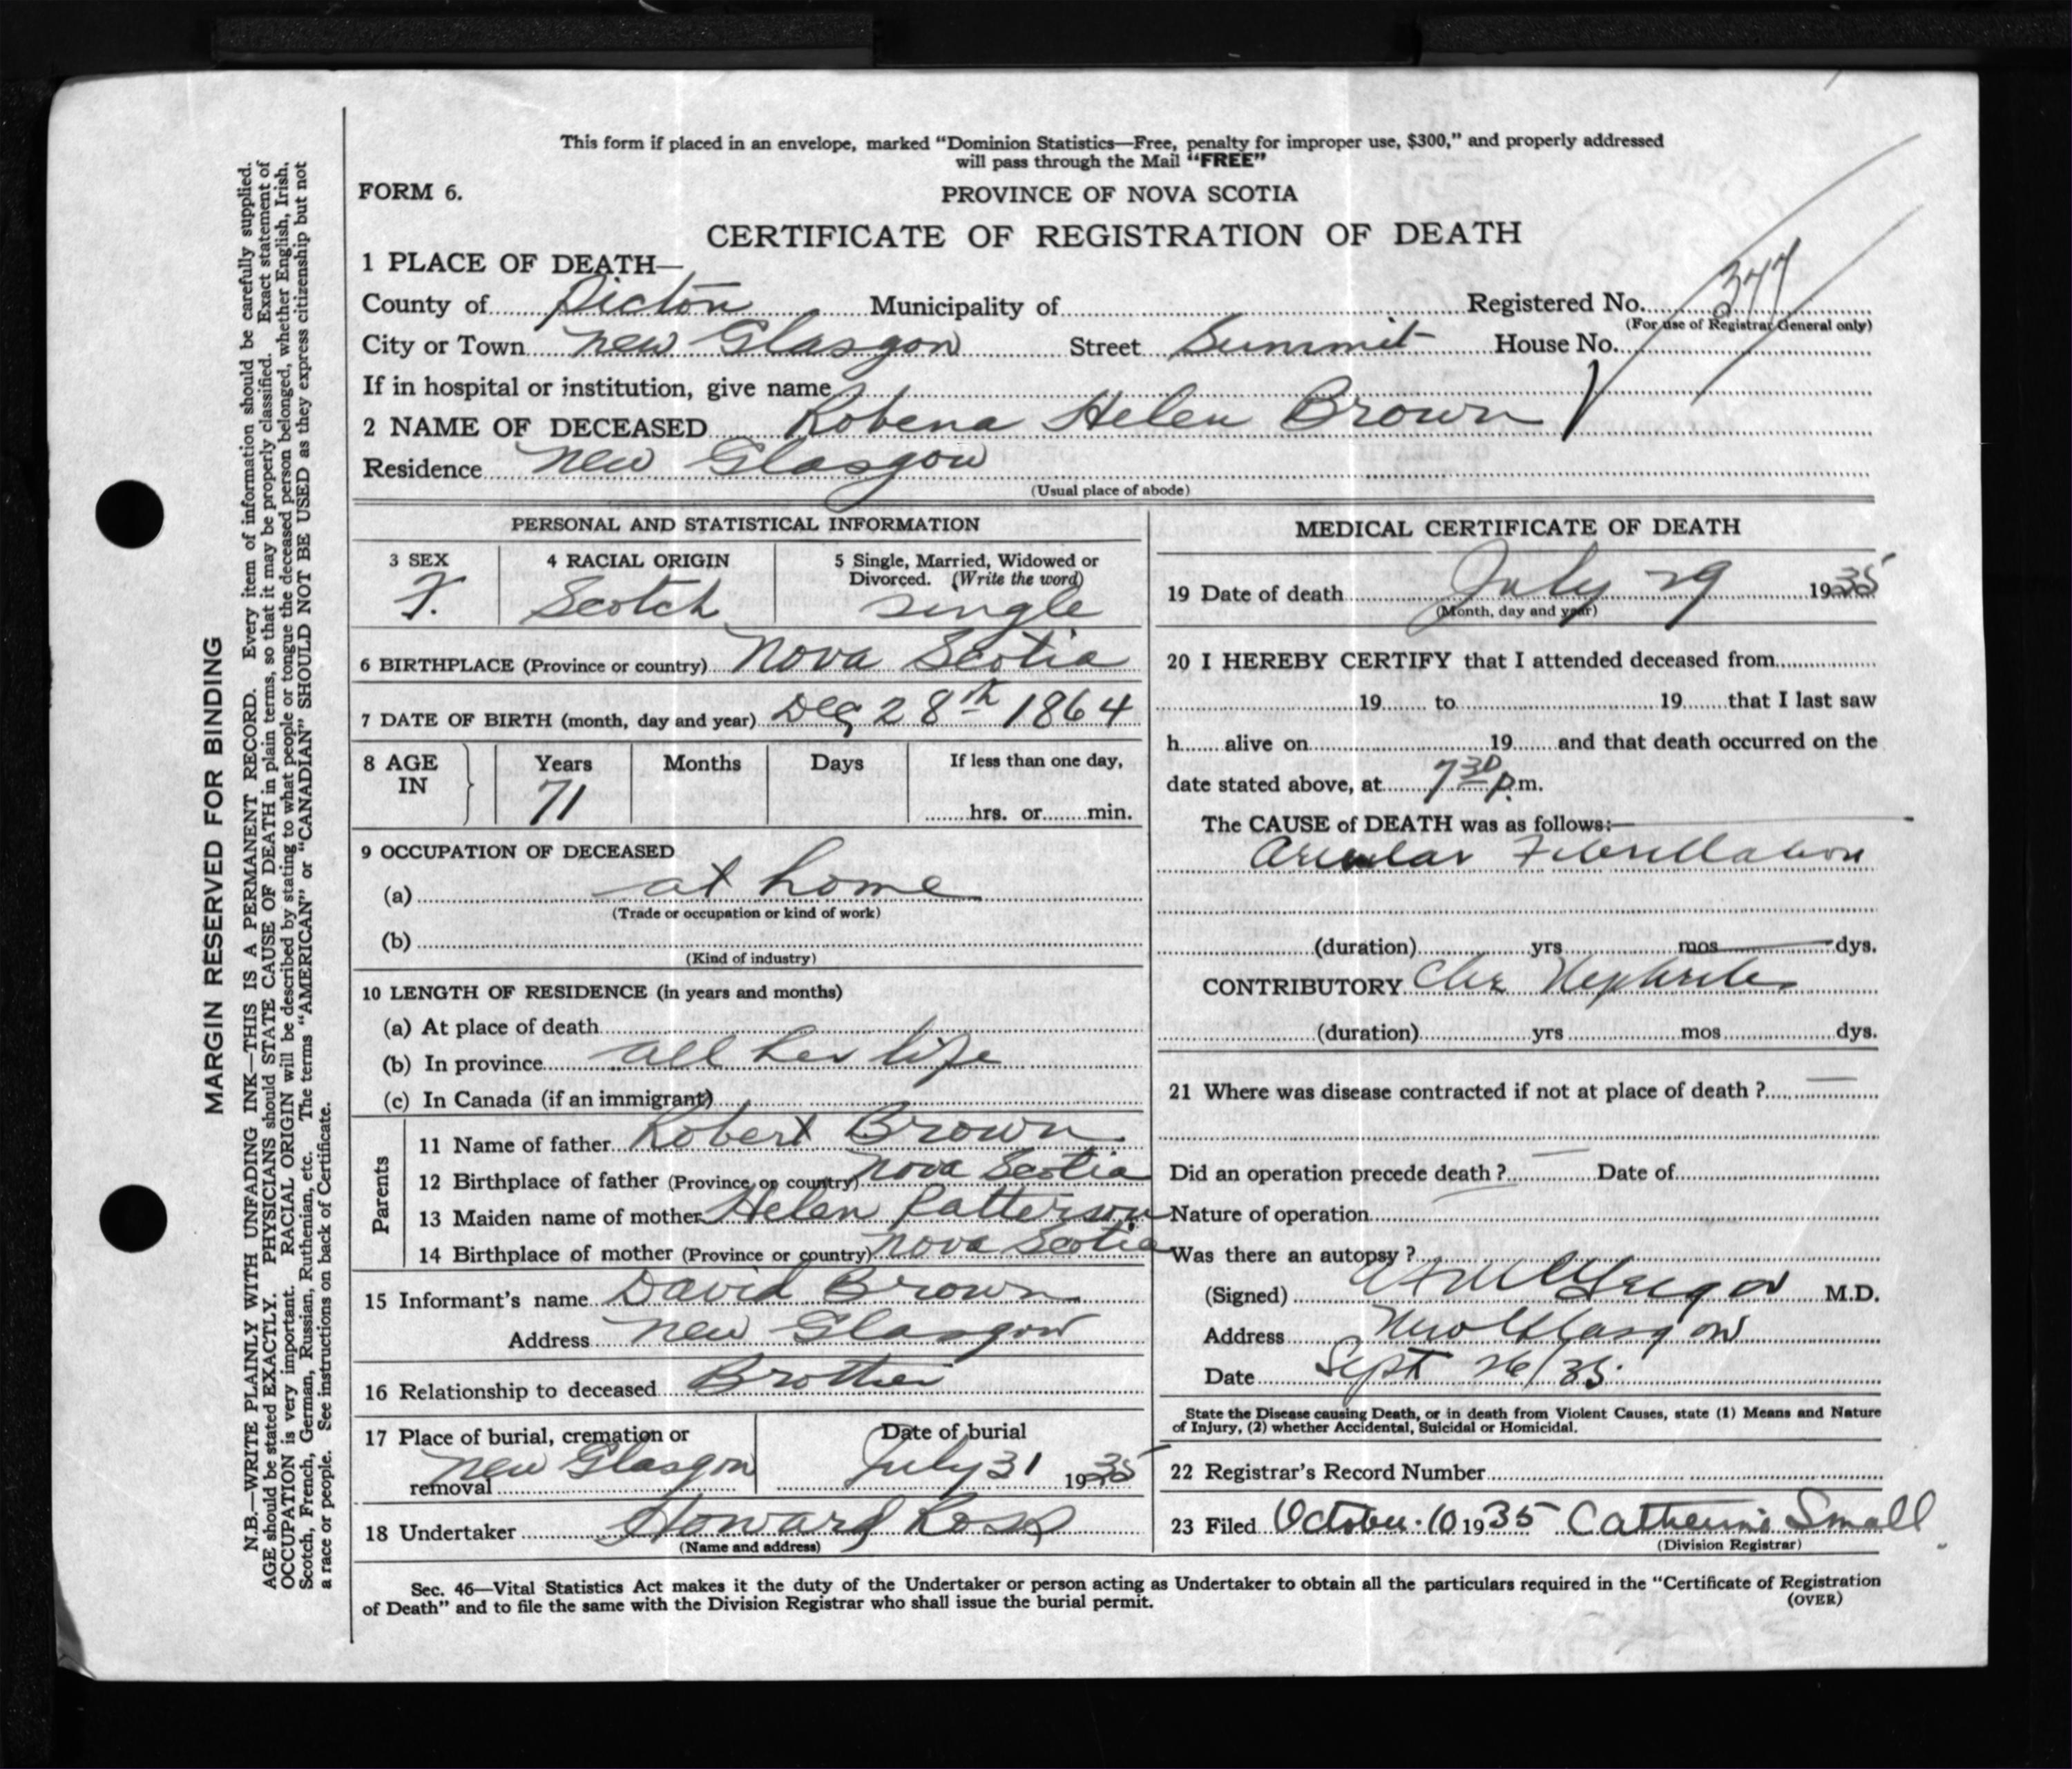 This form if placed in an envelope, marked "Dominion Statistics—Free, penalty for improper use, $300," and properly addressed
will pass through the Mail "FREE"
FORM 6.
PROVINCE OF NOVA SCOTIA
CERTIFICATE OF REGISTRATION OF DEATH
1 PLACE OF DEATH—
County of Pictou Municipality of Registered No.
(For use of Registrar General only)
City or Town New Glasgow Street Summit House No.
If in hospital or institution, give name
2 NAME OF DECEASED Robena Helen Brown
Residence New Glasgow
(Usual place of abode)
PERSONAL AND STATISTICAL INFORMATION
3 SEX 4 RACIAL ORIGIN 5 Single, Married, Widowed or
Divorced. (Write the word)
F. Scotch Single
6 BIRTHPLACE (Province or country) Nova Scotia
7 DATE OF BIRTH (month, day and year) Dec 28th 1864
8 AGE IN Years Months Days If less than one day,
71 hrs. or min.
9 OCCUPATION OF DECEASED
(a) at home
(Trade or occupation or kind of work)
(b)
(Kind of industry)
10 LENGTH OF RESIDENCE (in years and months)
(a) At place of death
(b) In province all her life
(c) In Canada (if an immigrant)
Parents
11 Name of father Robert Brown
12 Birthplace of father (Province or country) Nova Scotia
13 Maiden name of mother Helen Patterson
14 Birthplace of mother (Province or country) Nova Scotia
15 Informant's name David Brown
Address New Glasgow
16 Relationship to deceased Brother
17 Place of burial, cremation or Date of burial
removal New Glasgow July 31 1935
18 Undertaker Howard Ross
(Name and address)
MEDICAL CERTIFICATE OF DEATH
19 Date of death July 29 1935
(Month, day and year)
20 I HEREBY CERTIFY that I attended deceased from
19 to 19 that I last saw
h alive on 19 and that death occurred on the
date stated above, at 7 30 p.m.
The CAUSE of DEATH was as follows:—
Fibrillation
(duration) yrs mos dys.
CONTRIBUTORY Chr Nephritis
(duration) yrs mos dys.
21 Where was disease contracted if not at place of death ?
Did an operation precede death ? Date of
Nature of operation
Was there an autopsy ?
(Signed) M.D.
Address New Glasgow
Date Sept 26/35.
State the Disease causing Death, or in death from Violent Causes, state (1) Means and Nature
of Injury, (2) whether Accidental, Suicidal or Homicidal.
22 Registrar's Record Number
23 Filed October 10 1935 Catherine Small
(Division Registrar)
Sec. 46—Vital Statistics Act makes it the duty of the Undertaker or person acting as Undertaker to obtain all the particulars required in the "Certificate of Registration
of Death" and to file the same with the Division Registrar who shall issue the burial permit.
(OVER)
MARGIN RESERVED FOR BINDING
N.B.—WRITE PLAINLY WITH UNFADING INK—THIS IS A PERMANENT RECORD. Every item of information should be carefully supplied.
AGE should be stated EXACTLY. PHYSICIANS should STATE CAUSE OF DEATH in plain terms, so that it may be properly classified. Exact statement of
OCCUPATION is very important. RACIAL ORIGIN will be described by stating to what people or tongue the deceased person belonged, whether English, Irish,
Scotch, French, German, Russian, Ruthenian, etc. The terms "AMERICAN" or "CANADIAN" SHOULD NOT BE USED as they express citizenship but not
a race or people. See instructions on back of Certificate.